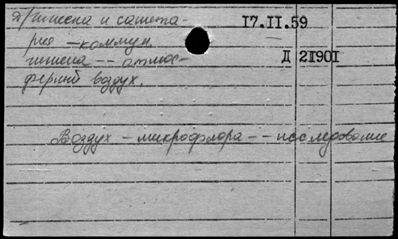 я/гигиена и санита-
рия - коммун.
гигиена -- атмос-
ферный воздух.
17.II.59
Д 21901
Воздух - микрофлора -- исследование